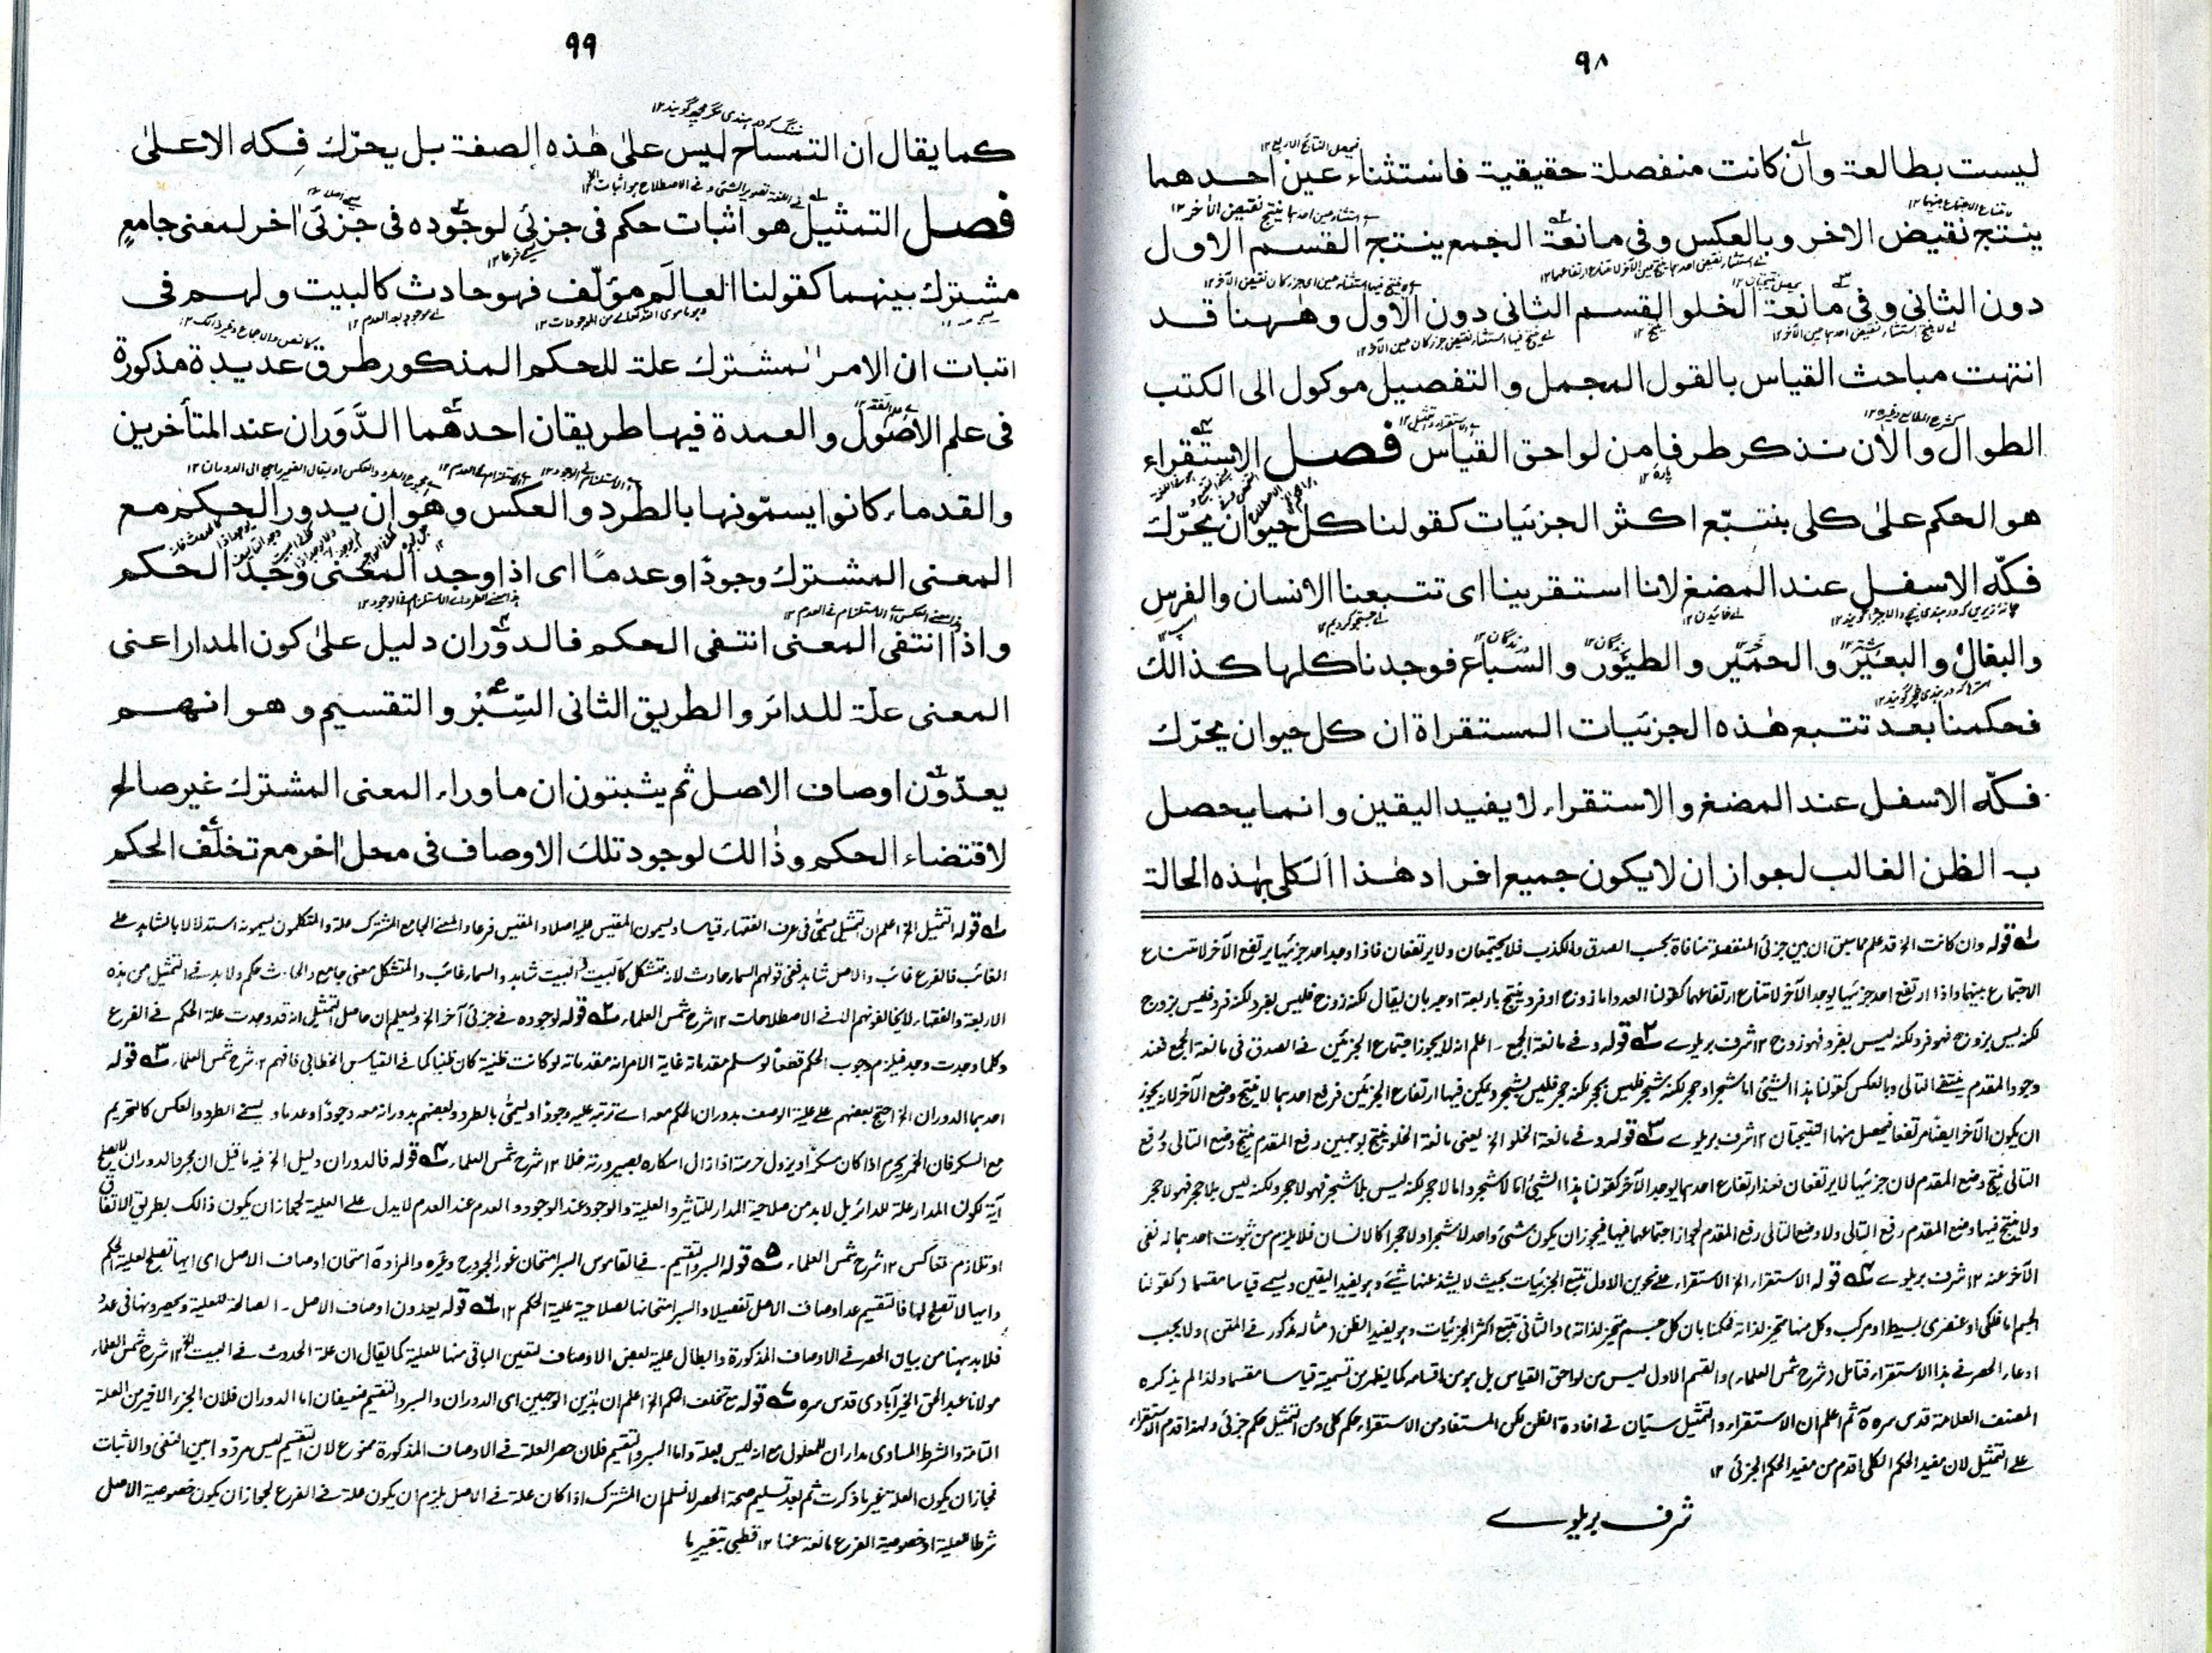 ٩٨
ليست بطالعة وان كانت منفصلة حقيقية فاستثناء عين احدهما
ينتج نقيض الاخر وبالعكس وفى مانعة الجمع ينتج القسم الاول
دون الثانى وفى مانعة الخلو القسم الثانى دون الاول وهٰهنا قد
انتهت مباحث القياس بالقول المجمل والتفصيل موكول الى الكتب
الطوال والاٰن نذكر طرفا من لواحق القياس فصل الاستقراء
هو الحكم علىٰ كلى بتتبّع اكثر الجزئيات كقولنا كل حيوان يحرّك
فكّه الاسفل عند المضغ لانا استقرينا اى تتبعنا الانسان والفرس
والبغال والبعير والحمير والطيور والسباع فوجدنا كلها كذالك
فحكمنا بعد تتبع هٰذه الجزئيات المستقراة ان كل حيوان يحرّك
فكّه الاسفل عند المضغ والاستقراء لا يفيد اليقين وانما يحصل
به الظن الغالب لجواز ان لا يكون جميع افراد هٰذا الكلى بهٰذه الحالة
١ قوله وان كانت الخ قد علم مما سبق ان بين جزئى المنفصلة منافاة بحسب الصدق والكذب فلا يجتمعان ولا يرتفعان فاذا وجد احد جزئيها يرتفع الآخر لامتناع
الاجتماع بينهما واذا ارتفع احد جزئيها يوجد الآخر لامتناع ارتفاعهما كقولنا العدد اما زوج او فرد ينتج باربعة اوجه بان يقال لكنه زوج فليس بفرد لكنه فرد فليس بزوج
لكنه ليس بزوج فهو فرد لكنه ليس بفرد فهو زوج ١٢ شرف بريلوے ٢ قوله وفے مانعة الجمع ۔ اعلم انه لا يجوز اجتماع الجزئين فے الصدق فى مانعة الجمع فعند
وجود المقدم ينتفے التالى وبالعكس كقولنا هذا الشيئ اما شجر او حجر لكنه شجر فليس بحجر لكنه حجر فليس بشجر ويمكن فيها ارتفاع الجزئين فرفع احدهما لا ينتج وضع الآخر لانه يجوز
ان يكون الآخر ايضا مرتفعا فيحصل منها النتيجتان ١٢ شرف بريلوے ٣ قوله وفے مانعة الخلو الخ يعنى مانعة الخلو ينتج بوجهين رفع المقدم ينتج وضع التالى ورفع
التالى ينتج وضع المقدم لان جزئيها لا يرتفعان فعند ارتفاع احدهما يوجد الآخر كقولنا هذا الشيئ اما لا شجر واما لا حجر لكنه ليس بلا شجر فهو لا حجر ولكنه ليس بلا حجر فهو لا شجر
ولا ينتج فيها وضع المقدم رفع التالى ولا وضع التالى رفع المقدم لجواز اجتماعهما فيها فيجوز ان يكون شئ واحد لا شجرا ولا حجرا كالانسان فلا يلزم من ثبوت احدهما نفى
الآخر عنه ١٢ شرف بريلوے ٤ قوله الاستقراء الخ الاستقراء علے نحوين الاول تتبع الجزئيات بحيث لا يشذ عنها شئے وهو يفيد اليقين ويسمے قياسا مقسما (كقولنا
الجسم اما فلكى او عنصرى بسيط او مركب وكل منها متحيز لذاته فحكمنا بان كل جسم متحيز لذاته) والثانى تتبع اكثر الجزئيات وهو يفيد الظن (مثاله مذكور فے المتن) ولا يجب
ادعاء الحصر فے هذا الاستقراء فتامل (شرح شمس العلماء) والقسم الاول ليس من لواحق القياس بل هو من اقسامه كما يظهر من تسمية قياسا مقسما ولذا لم يذكره
المصنف العلامة قدس سره ثم اعلم ان الاستقراء والتمثيل سيّان فے افادة الظن لكن المستفاد من الاستقراء حكم كلى ومن التمثيل حكم جزئى ولهذا قدم الاستقراء
علے التمثيل لان مفيد الحكم الكلى اقدم من مفيد الحكم الجزئى ١٢
شرف بريلوے
٩٩
كما يقال ان التمساح ليس علىٰ هٰذه الصفة بل يحرّك فكه الاعلىٰ
فصل التمثيل هو اثبات حكم فى جزئى لوجوده فى جزئى اٰخر لمعنى جامع
مشترك بينهما كقولنا العالَم مؤلّف فهو حادث كالبيت ولهم فى
اثبات ان الامر المشترك علة للحكم المذكور طرق عديدة مذكورة
فى علم الاصول والعمدة فيها طريقان احدهما الدَّوَران عند المتأخرين
والقدماء كانوا يسمّونها بالطرد والعكس وهو ان يدور الحكم مع
المعنى المشترك وجودًا وعدمًا اى اذا وجد المعنى وجد الحكم
واذا انتفى المعنى انتفى الحكم فالدوران دليل علىٰ كون المدار اعنى
المعنى علّة للدائر والطريق الثانى السِّبْرُ والتقسيم وهو انهم
يعدّون اوصاف الاصل ثم يثبتون ان ما وراء المعنى المشترك غير صالح
لاقتضاء الحكم وذٰالك لوجود تلك الاوصاف فى محل اٰخر مع تخلّف الحكم
١ قوله التمثيل الخ اعلم ان التمثيل يسمّٰى فى عرف الفقهاء قياسا ويسمون المقيس عليه اصلا والمقيس فرعا والمعنے الجامع المشترك علة والمتكلمون يسمونه استدلالا بالشاهد علے
الغائب فالفرع غائب والاصل شاهد ففى قولهم السماء حادث لانه متشكل كالبيت البيت شاهد والسماء غائب والمتشكل معنى جامع والحادث حكم ولا بد فے التمثيل من هذه
الاربعة والفقهاء لا يخالفونهم الا فے الاصطلاحات ١٢ شرح شمس العلماء ٢ قوله لوجوده فے جزئى آخر الخ وليعلم ان حاصل التمثيل انه قد وجدت علة الحكم فے الفرع
وكلما وجدت وجد فيلزم وجوب الحكم قطعا لو سلم مقدماته غاية الامر انه مقدماته لو كانت ظنية كان ظنيا كما فے القياس الخطابى فافهم ١٢ شرح شمس العلماء ٣ قوله
احدهما الدوران الخ احتج بعضهم علے علية الوصف بدوران الحكم معه اے ترتبه عليه وجودا ويسمّٰى بالطرد وبعضهم بدورانه معه وجودًا وعدما ويسمے الطرد والعكس كالتحريم
مع السكر فان الخمر يحرم اذا كان مسكرًا ويزول حرمته اذا زال اسكاره بصيرورته خلا ١٢ شرح شمس العلماء ٤ قوله فالدوران دليل الخ فيه ما قيل ان مجرد الدوران لا يصلح
آية لكون المدار علة للدائر بل لا بد من صلاحية المدار للتاثير والعلية والوجود عند الوجود والعدم عند العدم لا يدل علے العلية لجواز ان يكون ذالك بطريق الاتفاق
او تلازم تعاكس ١٢ شرح شمس العلماء ٥ قوله السبر والتقسيم ۔ فے القاموس السبر امتحان غور الجروح وغيره والمراد امتحان اوصاف الاصل اى ايها تصلح لعلية الحكم
وايها لا تصلح لها فالتقسيم عد اوصاف الاصل تفصيلا والسبر امتحانها لصلاحية علية الحكم ١٢ ٦ قوله يعدون اوصاف الاصل ۔ الصالحة للعلية ويحصرونها فى عدد
فلا بد ههنا من بيان الحصر فے الاوصاف المذكورة وابطال علية بعض الاوصاف لتعين الباقى منها للعلية كما يقال ان علة الحدوث فے البيت الخ ١٢ شرح شمس العلماء
مولانا عبد الحق الخيرآبادى قدس سره ٧ قوله مع تخلف الحكم الخ اعلم ان هذين الوجهين اى الدوران والسبر والتقسيم ضعيفان اما الدوران فلان الجزء الاخير من العلة
التامة والشرط المساوى مداران للمعلول مع انه ليس بعلة واما السبر والتقسيم فلان حصر العلة فے الاوصاف المذكورة ممنوع لان التقسيم ليس مردوا بين النفى والاثبات
فجاز ان يكون العلة غير ما ذكرت ثم بعد تسليم صحة الحصر لا نسلم ان المشترك اذا كان علة فے الاصل يلزم ان يكون علة فے الفرع لجواز ان يكون خصوصية الاصل
شرطا للعلية او خصوصية الفرع مانعة عنها ١٢ قطبى بتغير ما